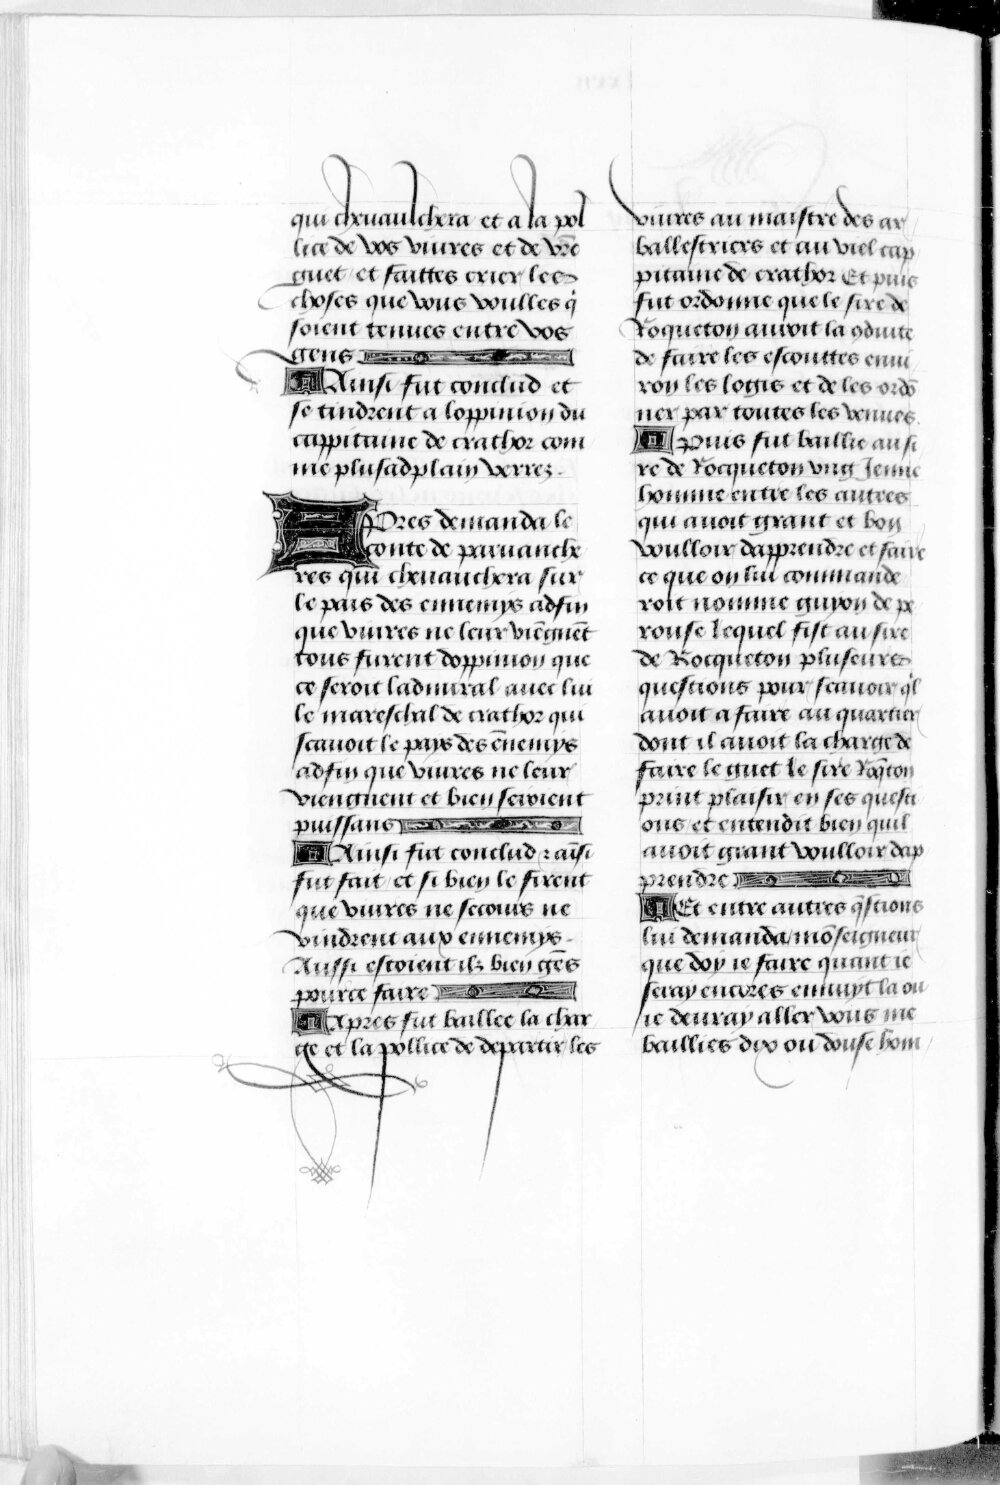 qui cheuaulchera et a la pol
lice de vos viures et de vr̃e
guet et faittes crier les
choses que vous voulles q̃
soient tenues entre vos
gens
Ainsi fut conclud et
se tindrent a loppinion du
cappitaine de crathor com
me plus adplain verrez.
Apres demanda le
conte de paruanche
res qui cheuauchera sur
le pais des ennemys adfin
que viures ne leur viẽgnẽt
tous furent doppinion que
ce seroit ladmiral auec lui
le mareschal de crathor qui
scauoit le pays des ẽnemys
adfin que viures ne leur
viengnent et bien seroient
puissans
Ainsi fut conclud ⁊ aĩsi
fut fait et si bien le firent
que viures ne secours ne
vindrent aux ennemys.
Aussi estoient ilz bien gẽs
pource faire
Apres fut baillee la char
ge et la pollice de departir les
viures au maistre des ar
ballestriers et au viel cap
pitaine de crathor Et puis
fut ordonne que le sire de
Roqueton auroit la ꝯduite
de faire les escouttes enui
ron les logis et de les ordõ
ner par toutes les venues.
puis fut baillie au si
re de Rocqueton vng Jenne
homme entre les autres
qui auoit grant et bon
voulloir dapprendre et faire
ce que on lui commande
roit nomme guyon de pe
rouse lequel fist au sire
de Rocqueton pluseurs
questions pour scauoir q̃l
auoit a faire au quartier
dont il auoit la charge de
faire le guet le sire Roq̃ton
print plaisir en ses questi
ons et entendit bien quil
auoit grant voulloir dap
prendre
Et entre autres q̃stions
lui demanda mõseigneur
que doy ie faire quant ie
seray encores ennuyt la ou
ie deuray aller vous me
baillies dix ou douse hom